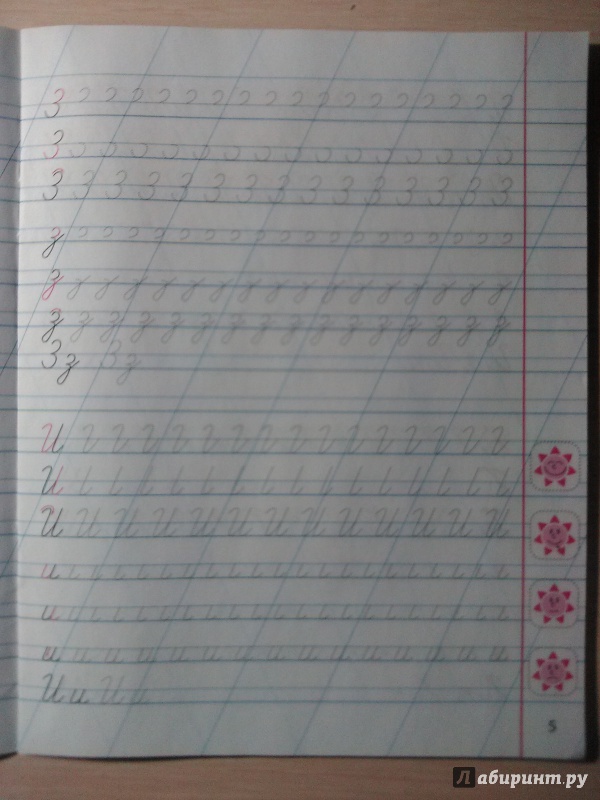 З
З
З З З З З З З З З З З З З З З
з
з
з з з з з з з з з з з з з з з з
Зз Зз
И
И
И И И И И И И И И И И И И
и
и
и и и и и и и и и и и и и и и
Ии Ии
5
Лабиринт.ру